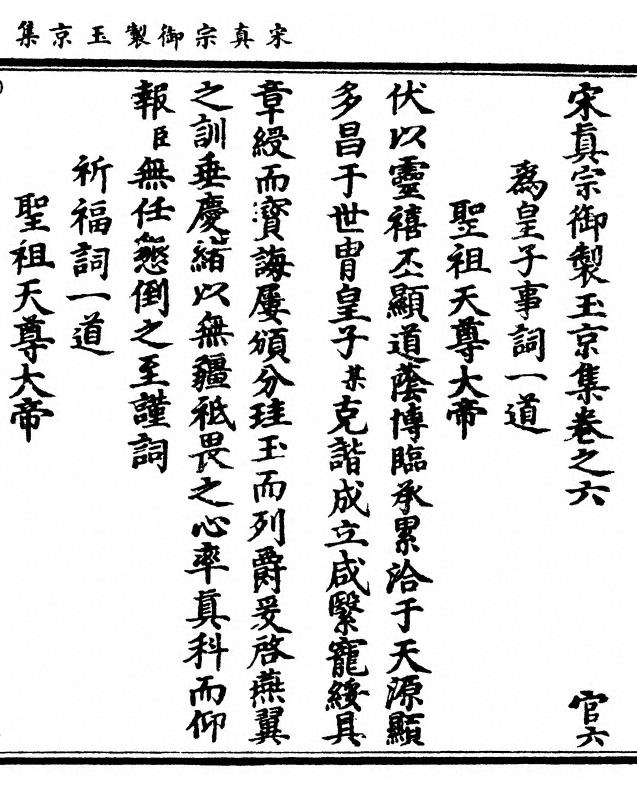 宋真宗御製玉京集
宋眞宗御製玉京集卷之六 官六
爲皇子事詞一道
聖祖天尊大帝
伏以靈禧丕顯道蔭博臨承累洽于天源顯
多昌于世胄皇子某克諧成立咸繄寵綏具
章綬而寳誨屢頒分珪玉而列爵爰啓燕翼
之訓垂慶緒以無疆祇畏之心率眞科而仰
報臣無任懇倒之至謹詞
祈福詞一道
聖祖天尊大帝